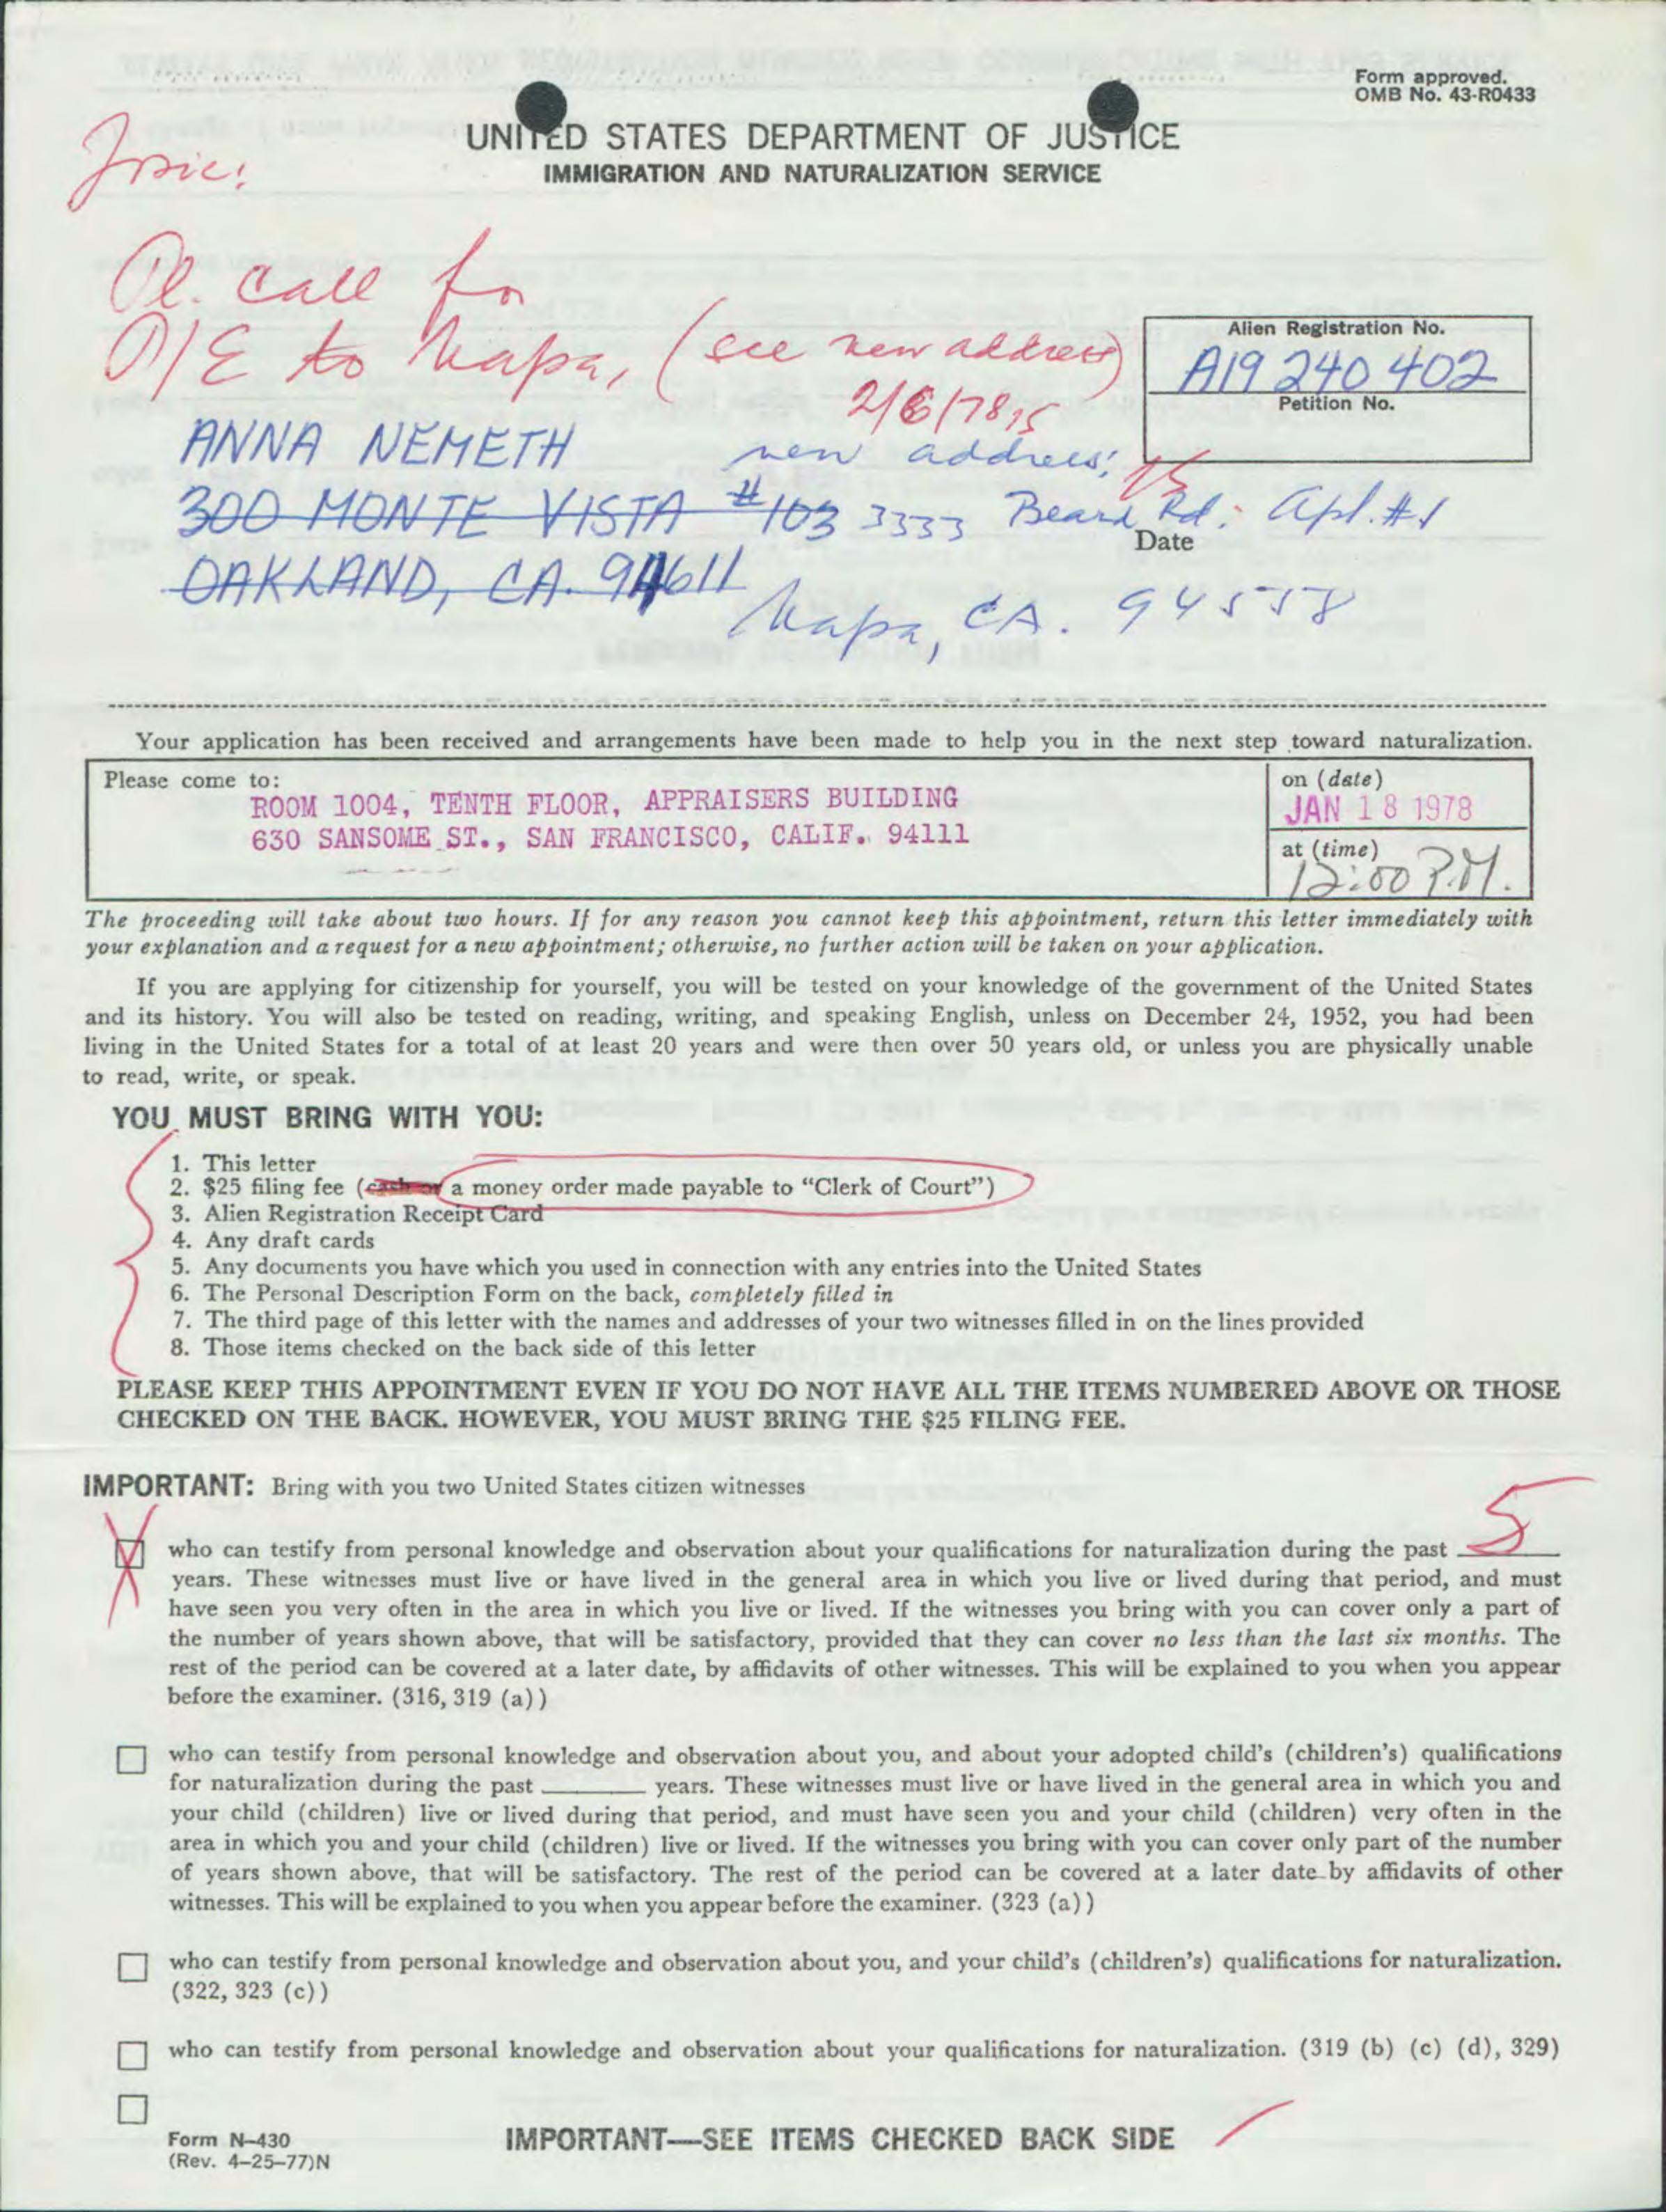 Form approved.
OMB No. 43-R0433
UNITED STATES DEPARTMENT OF JUSTICE
IMMIGRATION AND NATURALIZATION SERVICE
Pl. call for
O/E to Napa, (see new address)
2/6/78
Alien Registration No.
A19 240 402
Petition No.
ANNA NEMETH
new address:
300 MONTE VISTA #103 3333 Beard Rd. Apt. #1
Date
OAKLAND, CA. 94611
Napa, CA. 94558
Your application has been received and arrangements have been made to help you in the next step toward naturalization.
Please come to:
ROOM 1004, TENTH FLOOR, APPRAISERS BUILDING
630 SANSOME ST., SAN FRANCISCO, CALIF. 94111
on (date)
JAN 18 1978
at (time)
12:00 P.M.
The proceeding will take about two hours. If for any reason you cannot keep this appointment, return this letter immediately with
your explanation and a request for a new appointment; otherwise, no further action will be taken on your application.
If you are applying for citizenship for yourself, you will be tested on your knowledge of the government of the United States
and its history. You will also be tested on reading, writing, and speaking English, unless on December 24, 1952, you had been
living in the United States for a total of at least 20 years and were then over 50 years old, or unless you are physically unable
to read, write, or speak.
YOU MUST BRING WITH YOU:
1. This letter
2. $25 filing fee (cash or a money order made payable to “Clerk of Court”)
3. Alien Registration Receipt Card
4. Any draft cards
5. Any documents you have which you used in connection with any entries into the United States
6. The Personal Description Form on the back, completely filled in
7. The third page of this letter with the names and addresses of your two witnesses filled in on the lines provided
8. Those items checked on the back side of this letter
PLEASE KEEP THIS APPOINTMENT EVEN IF YOU DO NOT HAVE ALL THE ITEMS NUMBERED ABOVE OR THOSE
CHECKED ON THE BACK. HOWEVER, YOU MUST BRING THE $25 FILING FEE.
IMPORTANT: Bring with you two United States citizen witnesses
who can testify from personal knowledge and observation about your qualifications for naturalization during the past 5
years. These witnesses must live or have lived in the general area in which you live or lived during that period, and must
have seen you very often in the area in which you live or lived. If the witnesses you bring with you can cover only a part of
the number of years shown above, that will be satisfactory, provided that they can cover no less than the last six months. The
rest of the period can be covered at a later date, by affidavits of other witnesses. This will be explained to you when you appear
before the examiner. (316, 319 (a))
who can testify from personal knowledge and observation about you, and about your adopted child's (children's) qualifications
for naturalization during the past ______ years. These witnesses must live or have lived in the general area in which you and
your child (children) live or lived during that period, and must have seen you and your child (children) very often in the
area in which you and your child (children) live or lived. If the witnesses you bring with you can cover only part of the number
of years shown above, that will be satisfactory. The rest of the period can be covered at a later date by affidavits of other
witnesses. This will be explained to you when you appear before the examiner. (323 (a))
who can testify from personal knowledge and observation about you, and your child's (children's) qualifications for naturalization.
(322, 323 (c))
who can testify from personal knowledge and observation about your qualifications for naturalization. (319 (b) (c) (d), 329)
Form N-430
(Rev. 4-25-77)N
IMPORTANT—SEE ITEMS CHECKED BACK SIDE